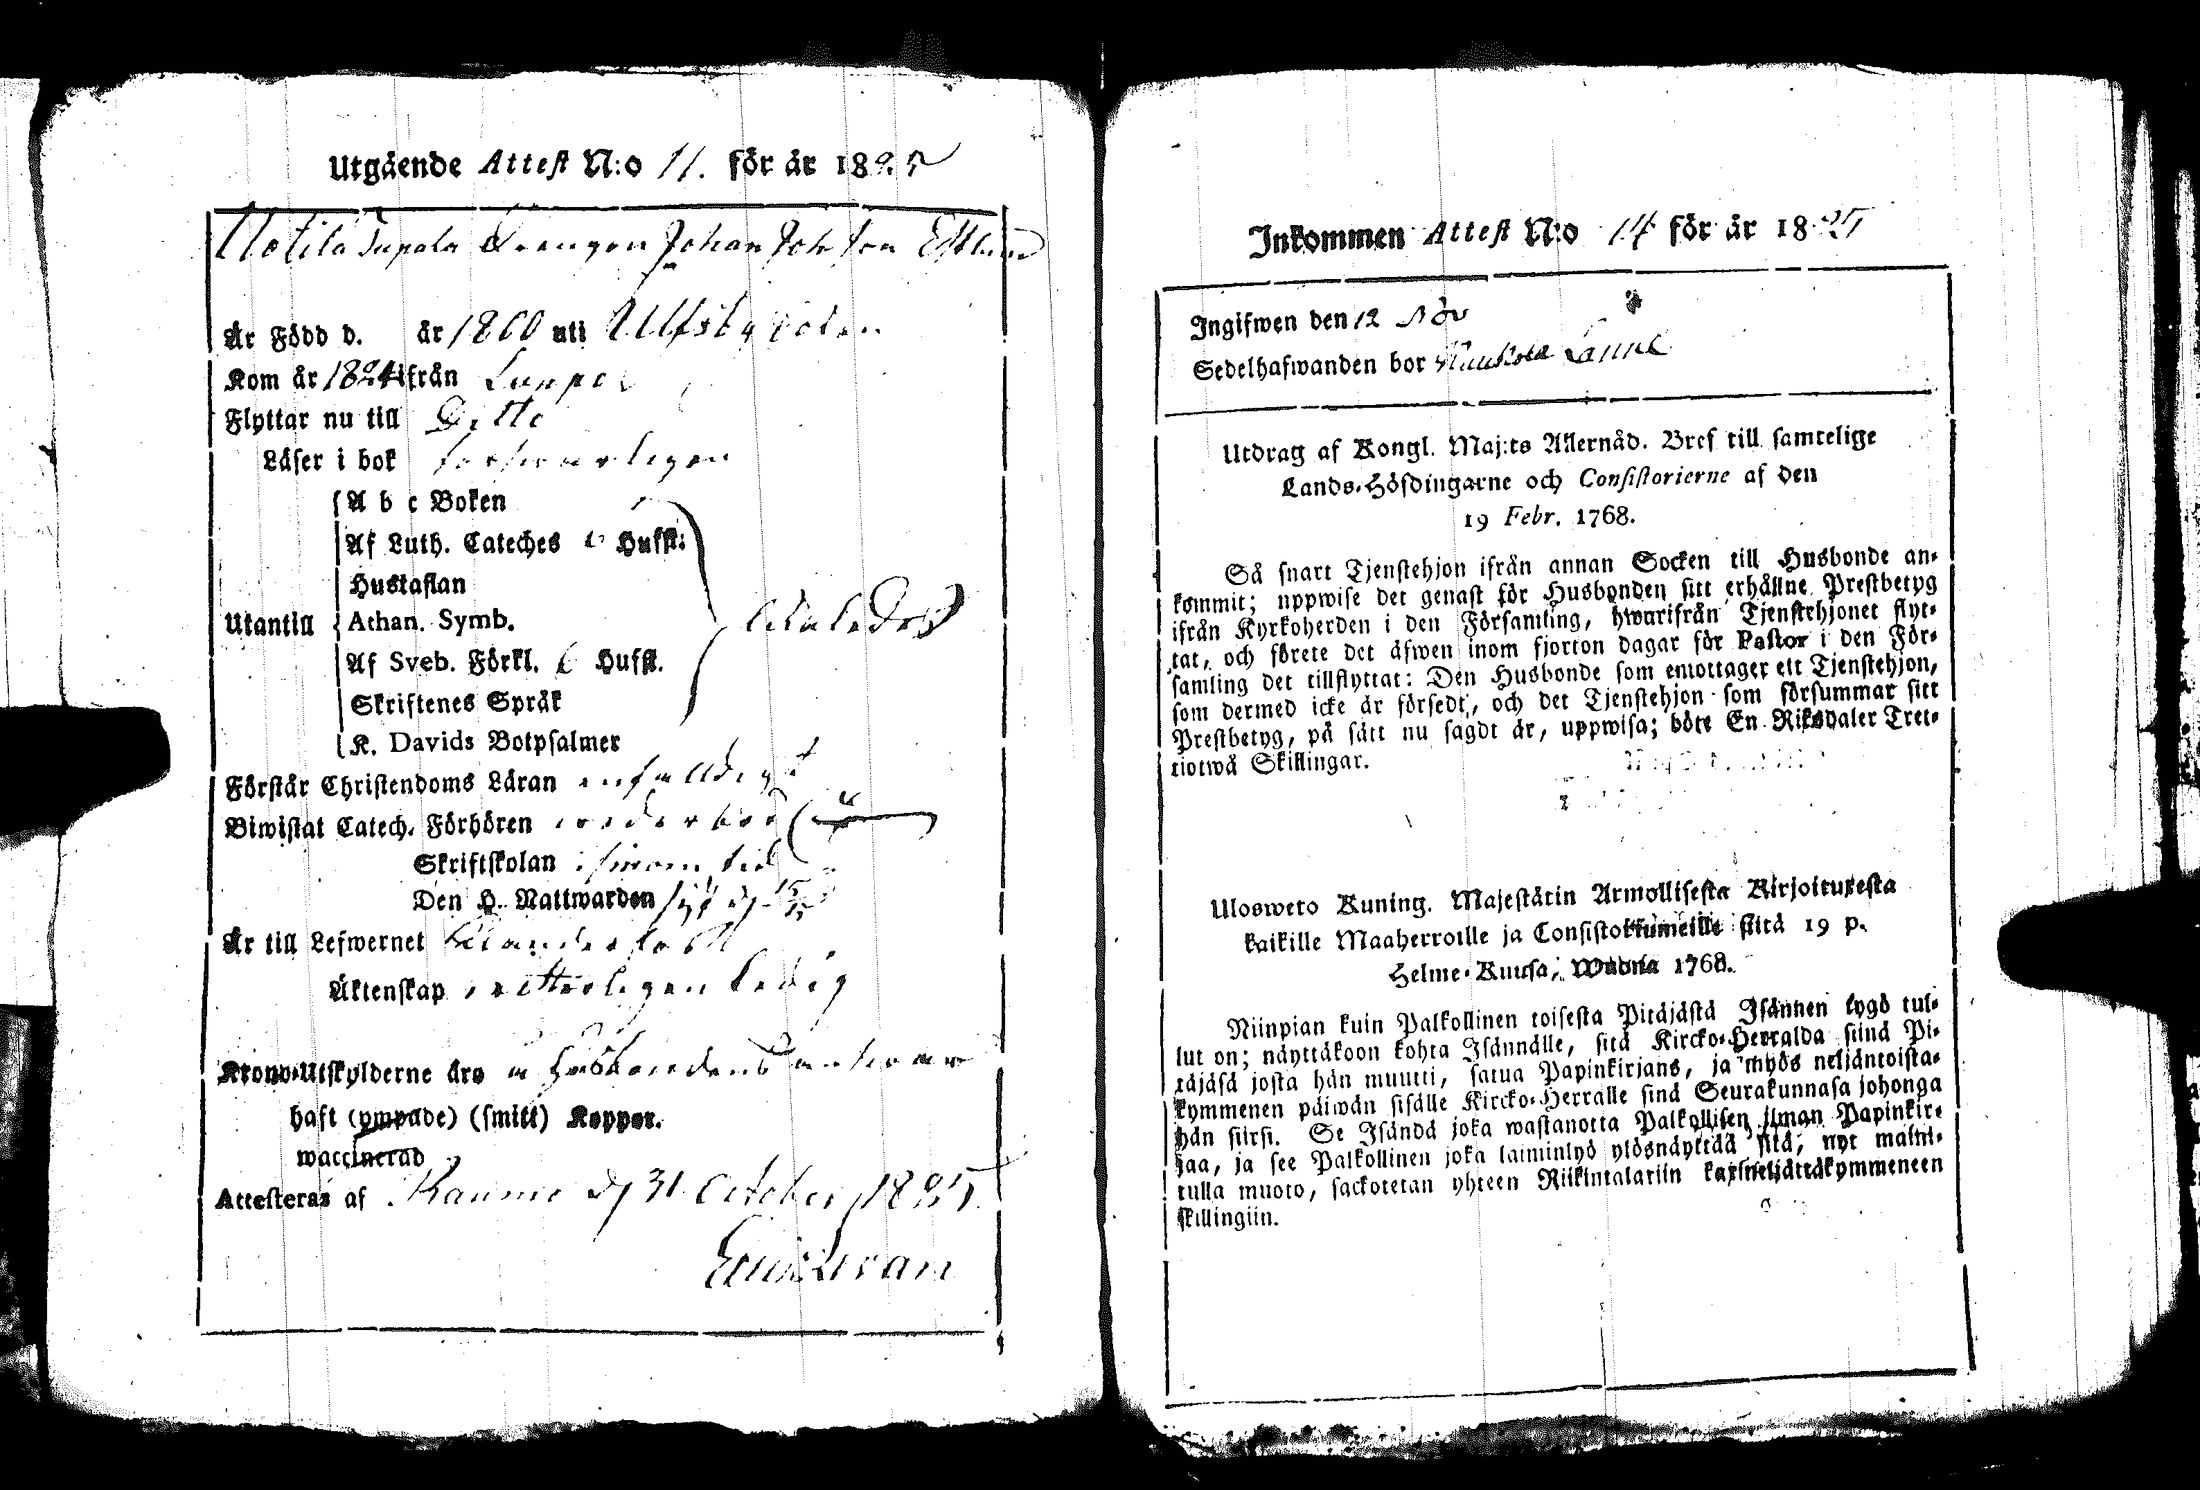 Utgående Attest N:o 11. för år 1825
Tupala Drengen Johan Joh: son Estlund
Är Född d. år 1800 uti Ulfsby
Kom år 1824 ifrån Lappi
Flyttar nu till Ditto
Läser i bok forsvarligen
A b c Boken
Af Luth. Cateches Hufst:
Hustaflan
Utantill Athan. Symb.
Af Sveb. Förkl. 6 Hufst.
Skriftenes Språk
K. Davids Botpsalmer
Förstår Christendoms Läran enfalldigt
Biwistat Catech. Förhören wederbör
Skriftskolan i sinom tid
Den H. Nattwarden
Är till Lefwernet klanderlöst
Äktenskap witterligen ledig
Krono-Utskylderne äro å Husbondens answar
haft (ympade) (smitt) Koppor.
waccinerad
Attesteras af Raumo d 31 October 1825
Inkommen Attest N:o 14 för år 1825
Ingifwen den 12 Nov
Sedelhafwanden bor Laune
Utdrag af Kongl. Maj:ts Allernåd. Bref till samtelige
Lands-Höfdingarne och Consistorierne af den
19 Febr. 1768.
Så snart Tjenstehjon ifrån annan Socken till Husbonde an-
kommit; uppwise det genast för Husbonden sitt erhållne Prestbetyg
ifrån Kyrkoherden i den Församling, hwarifrån Tjenstehjonet flyt-
tat, och förete det äfwen inom fjorton dagar för Pastor i den För-
samling det tillflyttat: Den Husbonde som emottager ett Tjenstehjon,
som dermed icke är försedt, och det Tjenstehjon som försummar sitt
Prestbetyg, på sätt nu sagdt är, uppwisa; böte En Riksdaler Tret-
tiotwå Skillingar.
Ulosweto Kuning. Majestätin Armollisesta Kirjoituxesta
kaikille Maaherroille ja Consistoriumeille siitä 19 p.
Helme-Kuusa, Wuonna 1768.
Niinpian kuin Palkollinen toisesta Pitäjästä Isännen tygö tul-
lut on; näyttäköön kohta Isännälle, sitä Kircko-Herralda siinä Pi-
täjäsä josta hän muutti, satua Papinkirjans, ja myös neljäntoista-
kymmenen päiwän sisälle Kircko-Herralle siinä Seurakunnasa johonga
hän siirsi. Se Isändä joka wastanotta Palkollisen ilman Papinkir-
jaa, ja see Palkollinen joka laiminlyö ylösnäyttää sitä, nyt maini-
tulla muoto, sackotetan yhteen Riikintalariin kaxineljättäkymmeneen
skillingiin.